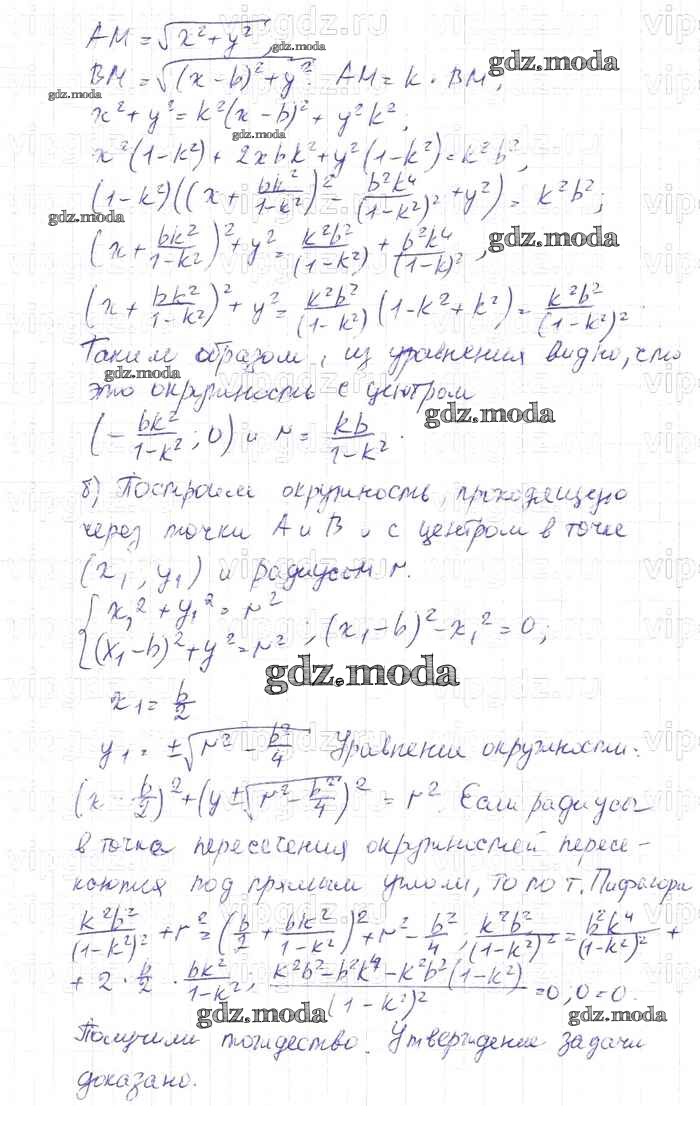 AM = √(x² + y²),
BM = √((x − b)² + y²) AM = k · BM,
x² + y² = k²(x − b)² + y²k²;
x²(1−k²) + 2xbk² + y²(1−k²) = k²b²,
(1−k²)((x + bk²/(1−k²))² − b²k⁴/(1−k²)² + y²) = k²b²;
(x + bk²/(1−k²))² + y² = k²b²/(1−k²) + b²k⁴/(1−k)²,
(x + bk²/(1−k²))² + y² = k²b²/(1−k²) (1−k²+k²) = k²b²/(1−k²)².
Таким образом, из уравнения видно, что
это окружность с центром
(−bk²/(1−k²; 0) и r = kb/(1−k²).
б) Построим окружность, проходящую
через точки A и B и с центром в точке
(x₁, y₁) и радиусом r.
{x₁² + y₁² = r²
{(x₁−b)² + y² = r²; (x₁−b)² − x₁² = 0;
x₁ = b/2
y₁ = ±√(r² − b²/4) Уравнение окружности:
(x − b/2)² + (y ± √(r² − b²/4))² = r². Если радиусы
в точка пересечения окружностей пересе-
каются под прямым углом, то по т. Пифагора
k²b²/(1−k²)² + r² = (b/2 + bk²/(1−k²))² + r² − b²/4; k²b²/(1−k²)² = b²k⁴/(1−k²)² +
+ 2 · b/2 · bk²/(1−k²); (k²b² − b²k⁴ − k²b²(1−k²))/(1−k²)² = 0; 0 = 0.
Получили тождество. Утверждение задачи
доказано.
gdz.moda
gdz.moda
gdz.moda
gdz.moda
gdz.moda
gdz.moda
gdz.moda
gdz.moda
gdz.moda
gdz.moda
gdz.moda
gdz.moda
gdz.moda
vipgdz.ru